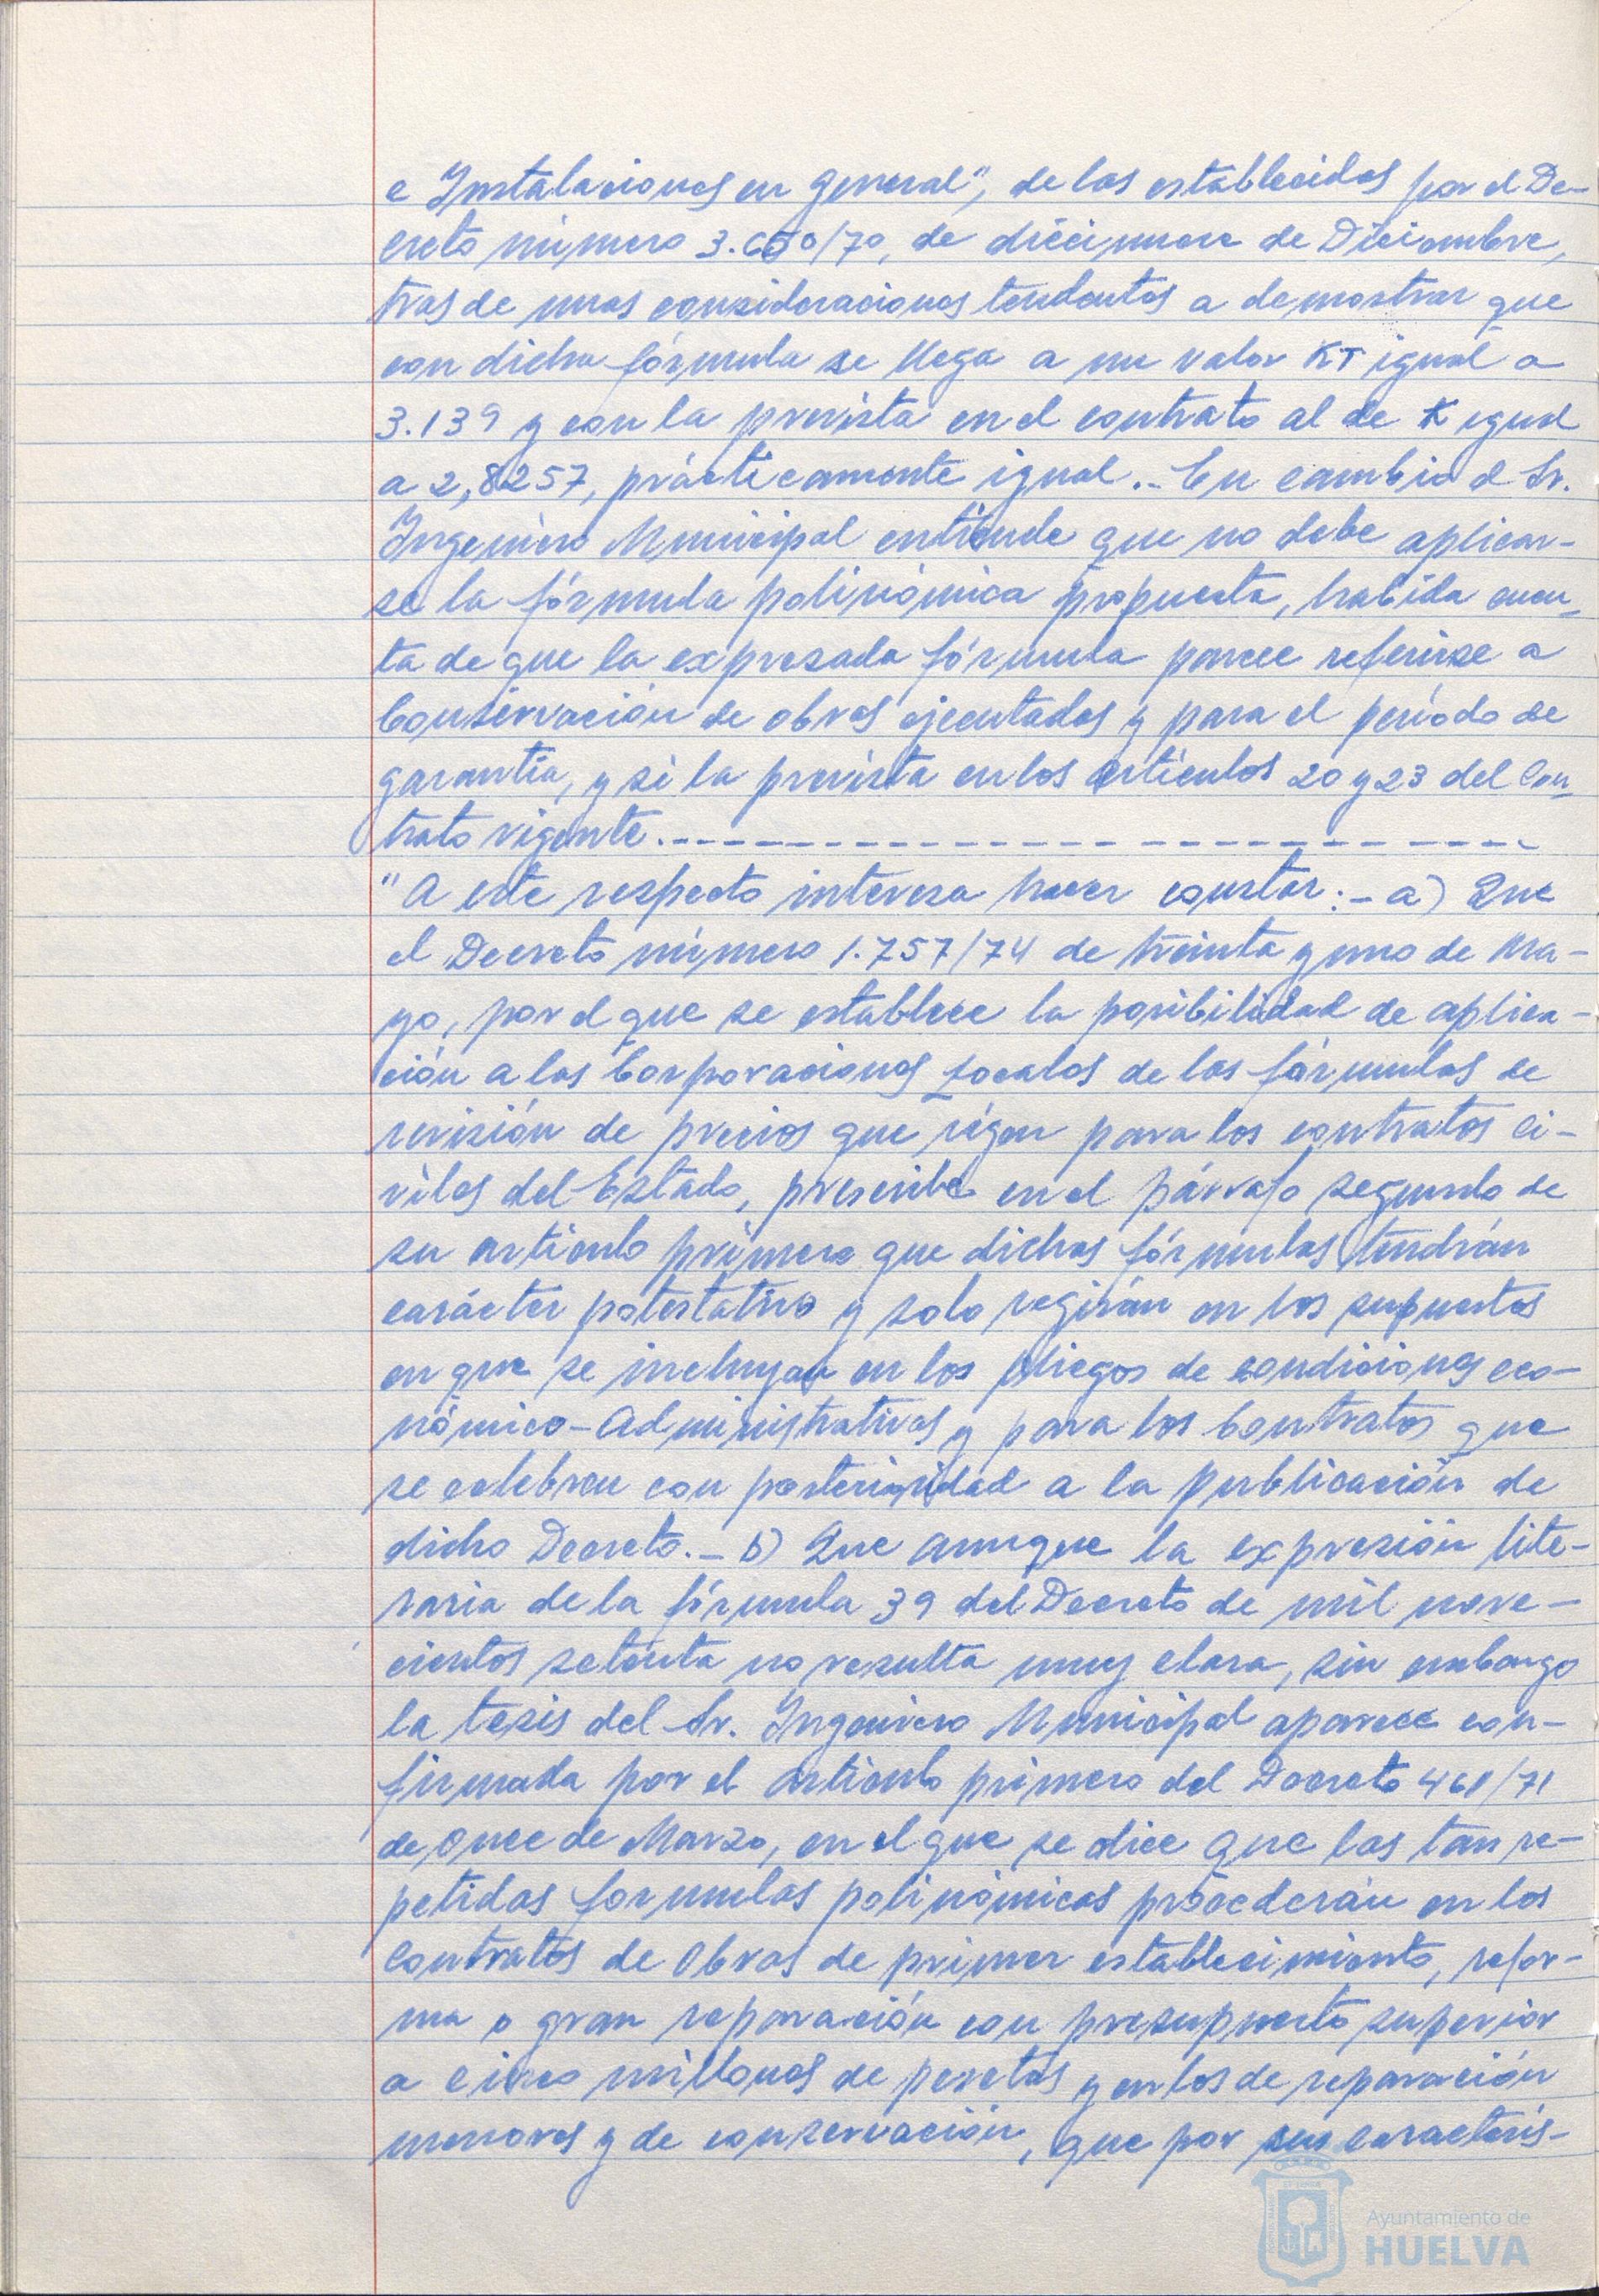 e Instalaciones en general", de las establecidas por el De-
creto número 3.650/70, de diécinueve de Diciembre,
tras de unas consideraciones tendentes a demostrar que
con dicha fórmula se llega a un valor KT igual a
3.139 y con la prevista en el contrato al de K igual
a 2,8257, prácticamente igual.- En cambio el Sr.
Ingeniero Municipal entiende que no debe aplicar-
se la fórmula polinómica propuesta, habida cuen-
ta de que la expresada fórmula parece referirse a
Conservación de obras ejecutadas y para el período de
garantía, y si la prevista en los artículos 20 y 23 del Con-
trato vigente.------------------------
"A este respecto interesa hacer constar:- a) Que
el Decreto número 1.757/74 de treinta y uno de Ma-
yo, por el que se establece la posibilidad de aplica-
ción a las Corporaciones Locales de las fórmulas de
revisión de precios que rigen para los contratos ci-
viles del Estado, prescribe en el párrafo segundo de
su artículo primero que dichas fórmulas tendrán
carácter potestativo y solo regirán en los supuestos
en que se incluyan en los pliegos de condiciones eco-
nómico-Administrativas y para los Contratos que
se celebren con posterioridad a la publicación de
dicho Decreto.- b) Que aunque la expresión lite-
raria de la fórmula 39 del Decreto de mil nove-
cientos setenta no resulta muy clara, sin embargo
la tesis del Sr. Ingeniero Municipal aparece con-
firmada por el artículo primero del Decreto 461/71
de Once de Marzo, en el que se dice que las tan re-
petidas formulas polinómicas procederán en los
Contratos de Obras de primer establecimiento, refor-
ma o gran reparación con presupuesto superior
a cinco millones de pesetas y en los de reparación
menores y de conservación, que por sus caracterís-
Ayuntamiento de
HUELVA